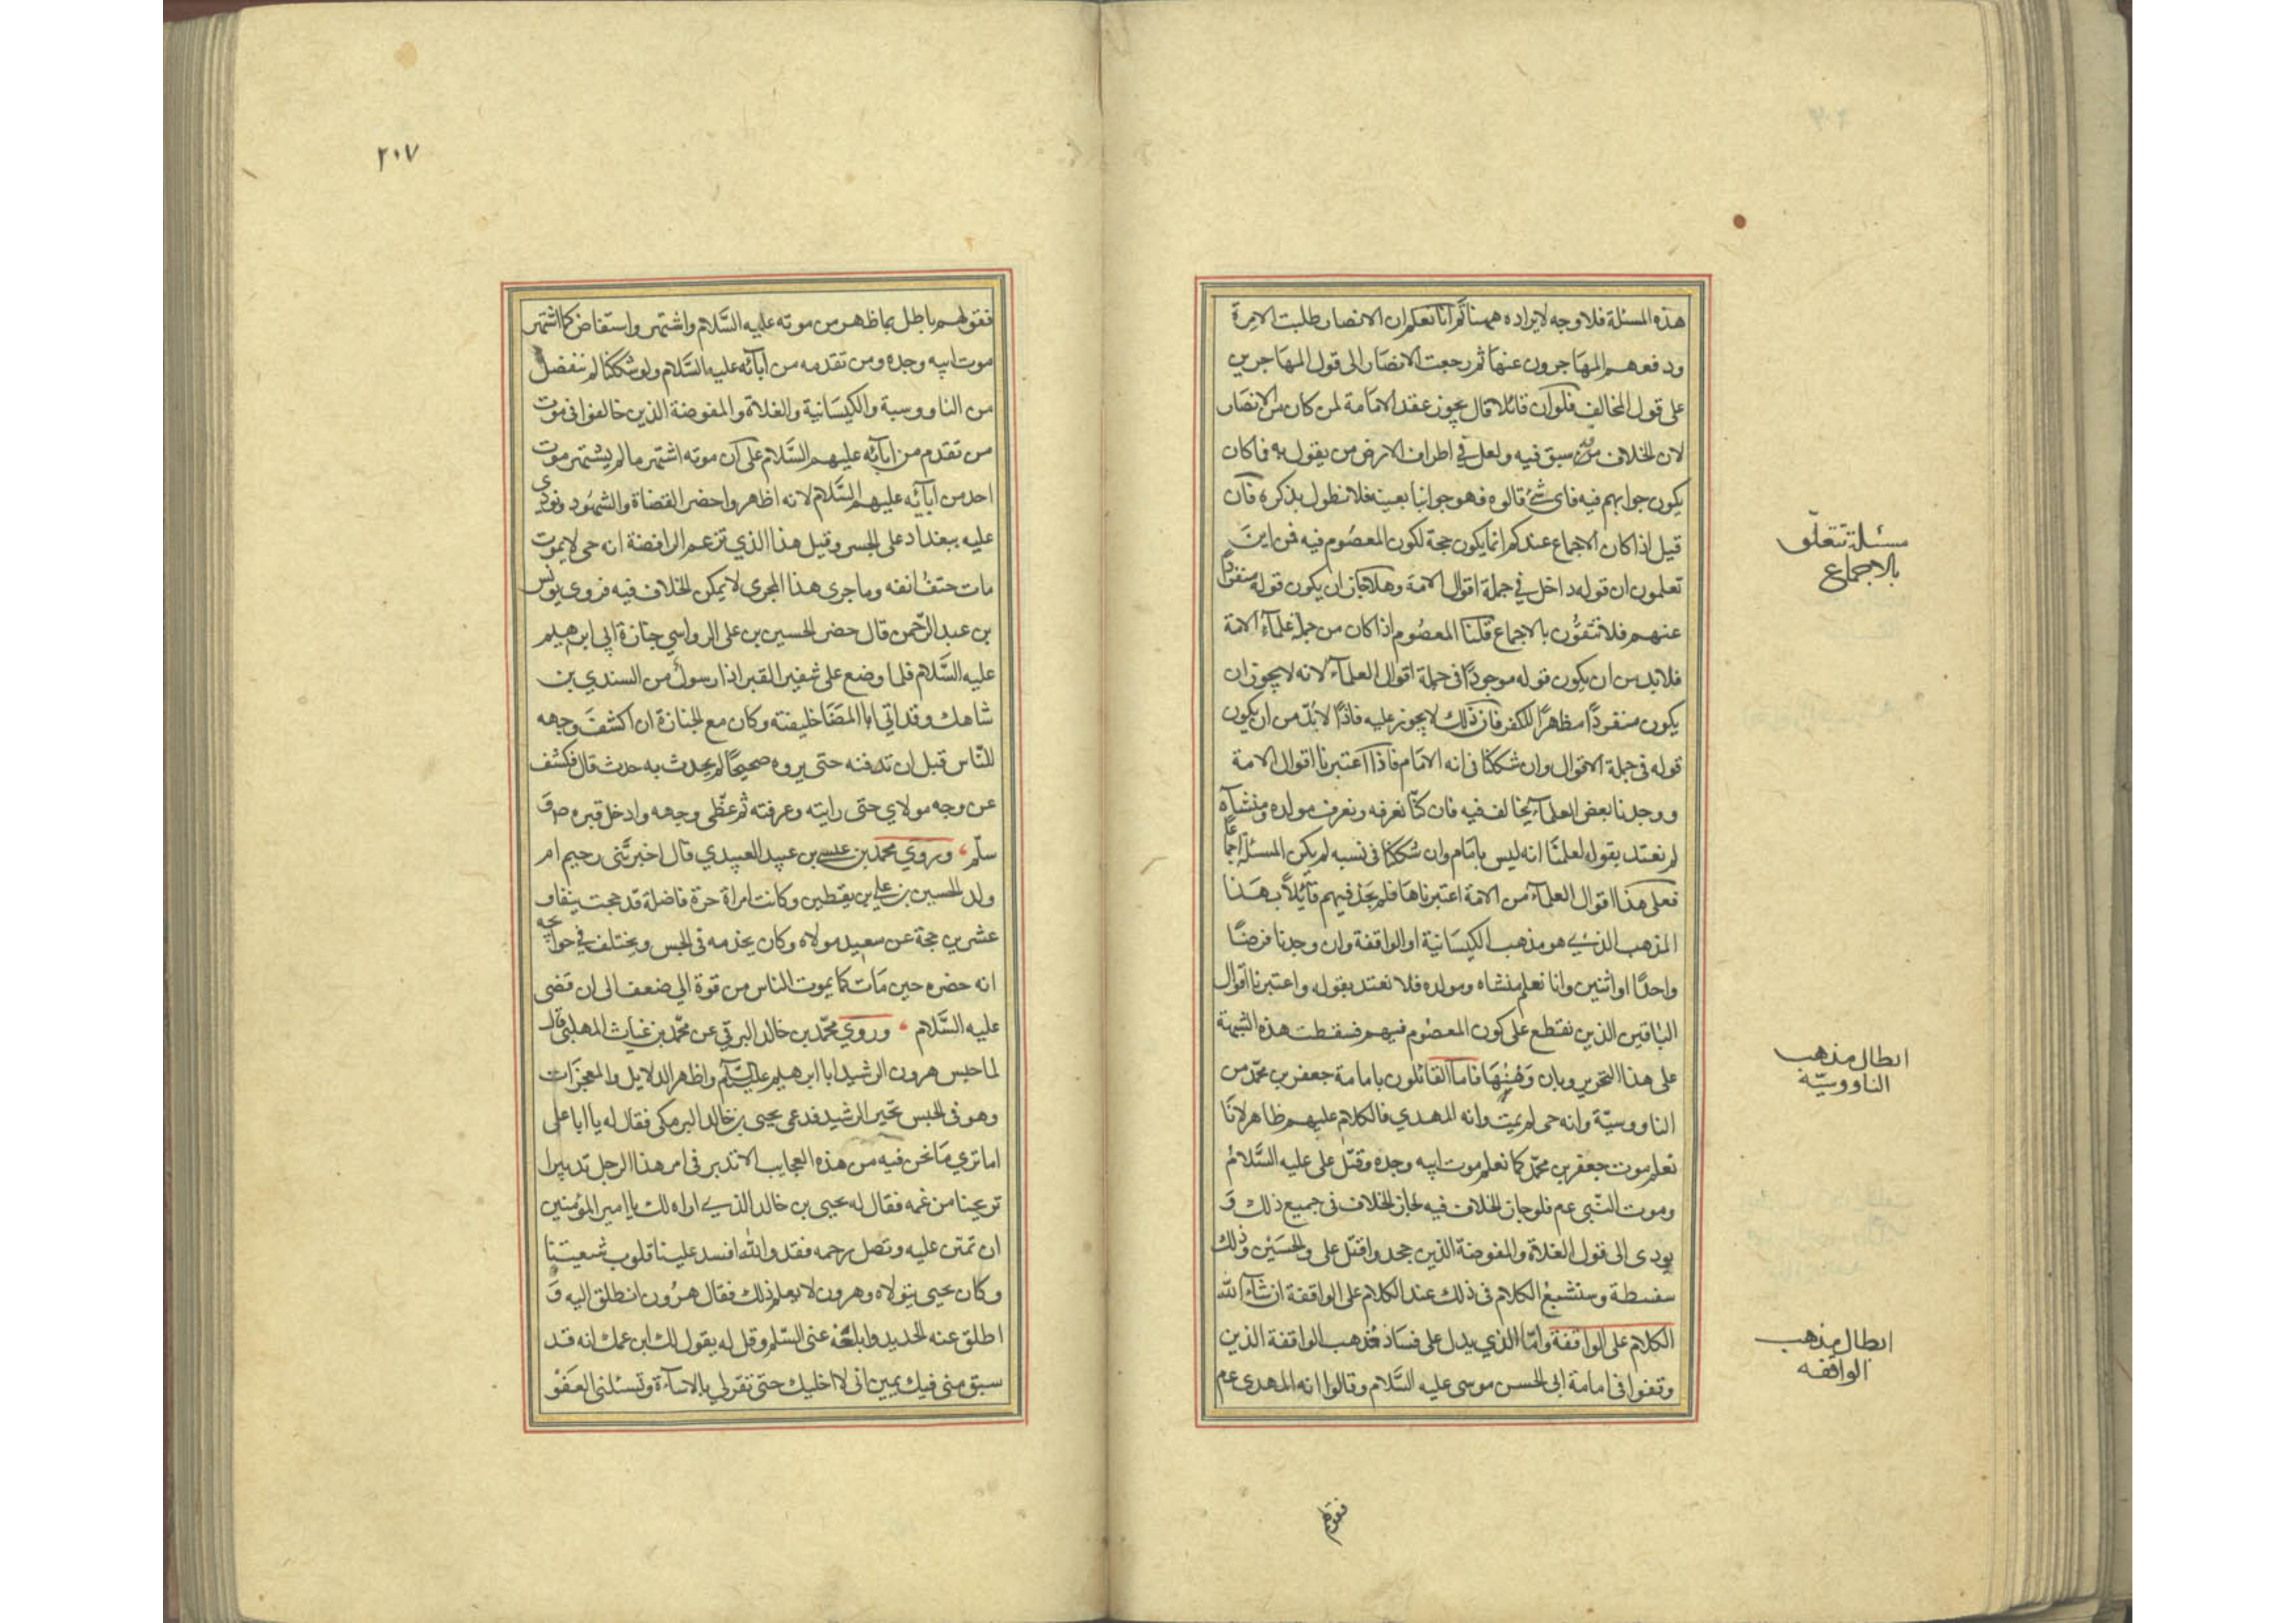 هذه المسئلة فلا وجه لايراده ههنا ثم انا نعلم ان الانصار طلبت الامرة
ودفعهم المهاجرون عنها ثم رجعت الانصار الى قول المهاجرين
على قول المخالف فلو ان قائلا قال يجوز عقد الامامة لمن كان من الانصار
لان الخلاف سبق فيه ولعل في اطراف الارض من يقول به فما كان
يكون جوابهم فيه فاى شئ قالوه فهو جوابنا بعينه فلا نطول بذكره فان
قيل اذا كان الاجماع عندكم انما يكون حجة لكون المعصوم فيه فمن اين
تعلمون ان قوله داخل في جملة اقوال الامة وهلا جاز ان يكون قوله منفردا
عنهم فلا تثقون بالاجماع قلنا المعصوم اذا كان من جملة علمآء الامة
فلا بد من ان يكون قوله موجودًا في جملة اقوال العلمآء لانه لا يجوز ان
يكون منفردًا مظهرًا للكفر فان ذلك لا يجوز عليه فاذًا لا بُدّ من ان يكون
قوله في جملة الاقوال وان شككنا فى انه الامام فاذا اعتبرنا اقوال الامة
ووجدنا بعض العلمآء يخالف فيه فان كنّا نعرفه ونعرف مولده ومنشاه
لم نعتد بقوله لعلمنا انه ليس بامام وان شككنا في نسبه لم يكن المسئلة اجماعا
فعلى هذا اقوال العلمآء من الامة اعتبرناها فلم نجد فيهم قآئلًا بهذا
المذهب الذي هو مذهب الكيسانية او الواقفة وان وجدنا فرضًا
واحدًا او اثنين وانا نعلم منشاه ومولده فلا نعتد بقوله واعتبرنا اقوال
الباقين الذين نقطع على كون المعصوم فيهم فسقطت هذه الشبهة
على هذا التحرير وبان وهنها فاما القائلون بامامة جعفر بن محمّد من
الناووسيّة وانه حى لم يمت وانه المهدي فالكلام عليهم ظاهر لانا
نعلم موت جعفر بن محمّد كما نعلم موت ابيه وجده وقتل على عليه السَّلامُ
وموت النّبى عم فلو جاز الخلاف فيه لجاز الخلاف فى جميع ذلك وَ
يودى الى قول الغلاة والمفوضة الذين جحدوا قتل على والحسَيْن وذلك
سفسطة وسنشبع الكلام فى ذلك عند الكلام على الواقفة انشآء الله
الكلام على الواقفة وامّا الذي يدل على فساد مذهب الواقفة الذين
وقفوا فى امامة ابى الحسن موسى عليه السَّلام وقالوا انه المهدى عم
مسئلة تتعلّق
بالاجماع
ابطال مذهب
الناووسيّة
ابطال مذهب
الواقفه
فقولهم
٢٠٧
فقولهم باطل بما ظهر من موته عليه السَّلام واشتهر واستفاض كما اشتهر
موت ابيه وجده ومن تقدمه من آبآئه عليه السَّلام ولو شككنا لم ننفصل
من الناووسية والكيسَانية والغلاة والمفوضة الذين خالفوا فى موت
من تقدم من ابآئه عليهم السَّلام على ان موته اشتهر ما لم يشتهر موت
احد من آبآئه عليهم السَّلام لانه اظهر واحضر القضاة والشهُود ونودى
عليه ببغداد على الجسر وقيل هذا الذي تزعم الرافضة انه حى لا يموت
مات حتف انفه وما جرى هذا المجرى لا يمكن الخلاف فيه فروى يونس
بن عبد الرّحمن قال حضر الحسين بن على الرواسي جنازة ابي ابرهيم
عليه السَّلام فلما وضع على شفير القبر اذا رسول من السندي بن
شاهك وقد اتي ابا المضَا خليفته وكان مع الجنازة ان اكشف وجهه
للنّاس قبل ان تدفنه حتى يروه صحيحًا لم يحدث به حدث قال فكشف
عن وجه مولاي حتى رايته وعرفته ثم غطّى وجهه وادخل قبره صَ
سلّم وروي محمد بن عيسى بن عبيد العبيدي قال اخبرتنى رحيم ام
ولد الحسين بن علي بن يقطين وكانت امراة حرة فاضلة قد حجت نيفا و
عشرين حجة عن سعيد مولاه وكان يخدمه فى الحبس ويختلف في حوائجه
انه حضره حين مَات كما يموت الناس من قوة الي ضعف الى ان قضى
عليه السَّلام وروي محمّد بن خالد البرقي عن محمّد بن غياث المهلبى قال
لما حبس هرون الرشيد ابا ابرهيم عليه السّلم واظهر الدلايل والمعجزات
وهو فى الحبس تحير الرشيد فدعى يحيى بن خالد البرمكى فقال له يا ابا على
اما تري مَا نحن فيه من هذه العجايب الا تدبر فى امر هذا الرجل تدبيرا
تريحنا من غمه فقال له يحيى بن خالد الذي اراه لك يا امير المؤمنين
ان تمتن عليه وتصل رحمه فقد والله افسد علينا قلوب شيعتنا
وكان يحيى يتولاه وهرون لا يعلم ذلك فقال هرُون انطلق اليه وَ
اطلق عنه الحديد وابلغه عنى السّلم وقل له يقول لك ابن عمك انه قد
سبق منى فيك يمين انى لا اخليك حتى تقر لي بالاسآءة وتسئلنى العفوْ